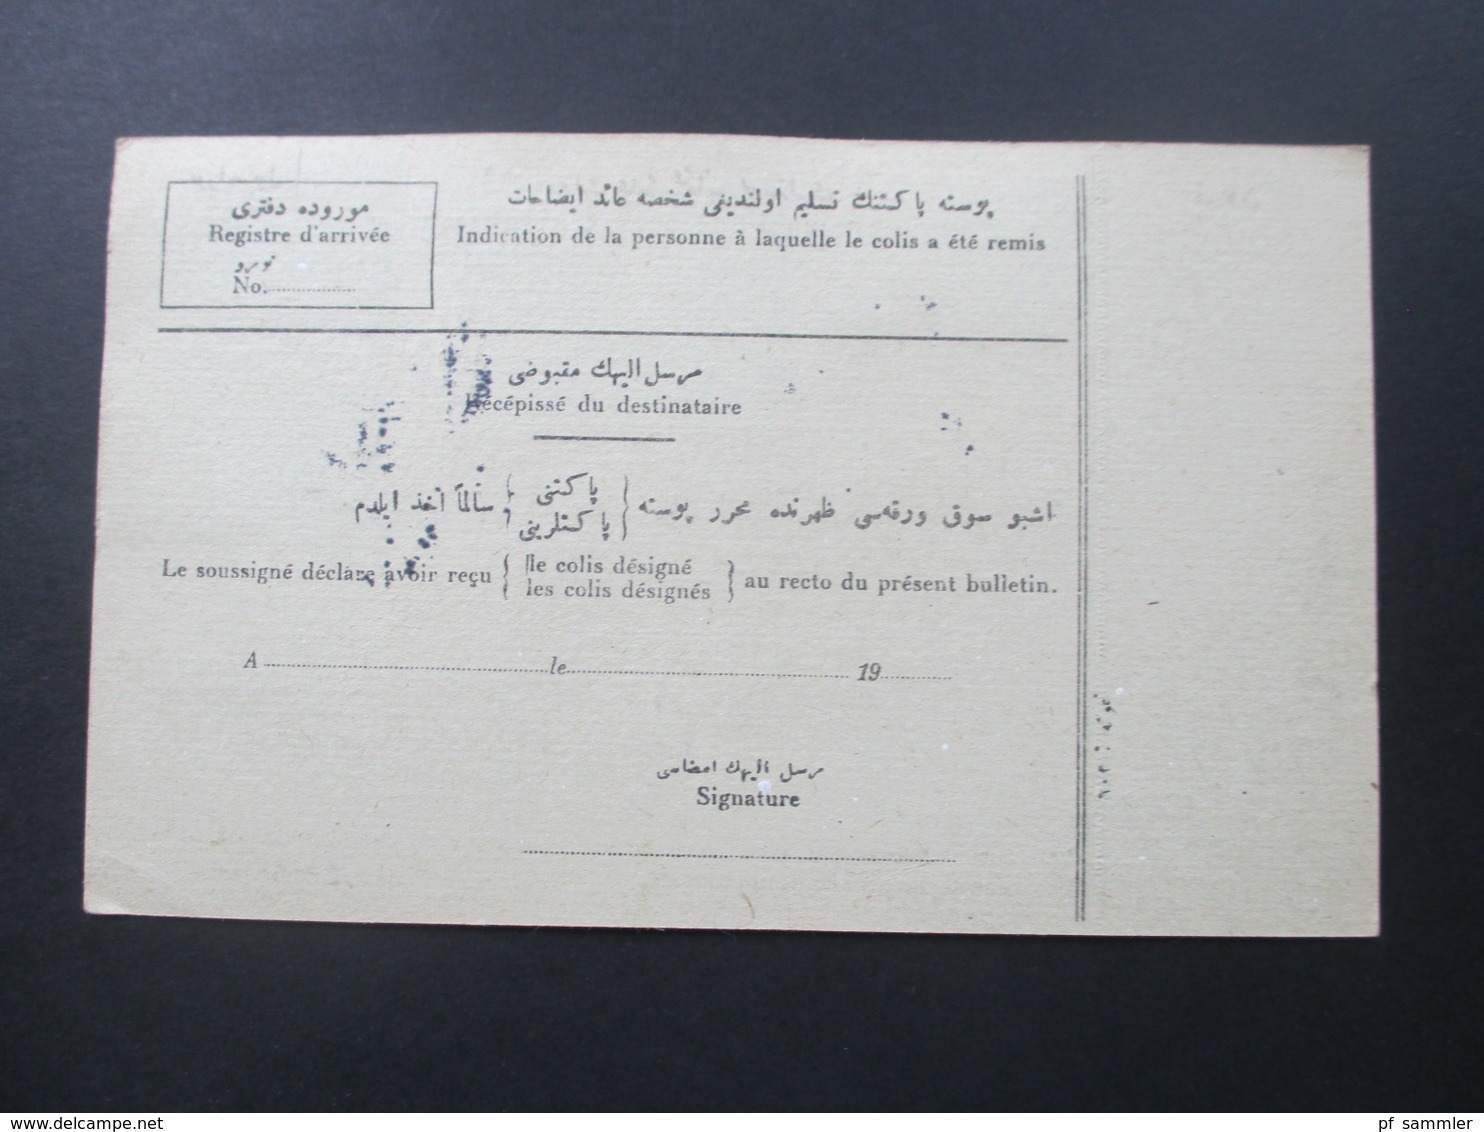 موروده دفتری
Registre d'arrivée
نومرو
No.
پوسته پاكتنك تسليم اولنديغی شخصه عائد ايضاحات
Indication de la personne à laquelle le colis a été remis
مرسل اليهك مقبوضی
Récépissé du destinataire
اشبو سوق ورقه‌سی ظهرنده محرر پوسته { پاكتنی / پاكتلرينی } سالماً اخذ ايلدم
Le soussigné déclare avoir reçu { le colis désigné / les colis désignés } au recto du présent bulletin.
A le 19
مرسل اليهك امضاسی
Signature
delcampe.net
pf_sammler